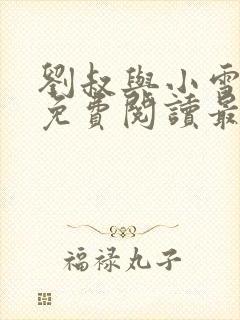 劉叔與小雪
免費閱讀最
福禄丸子